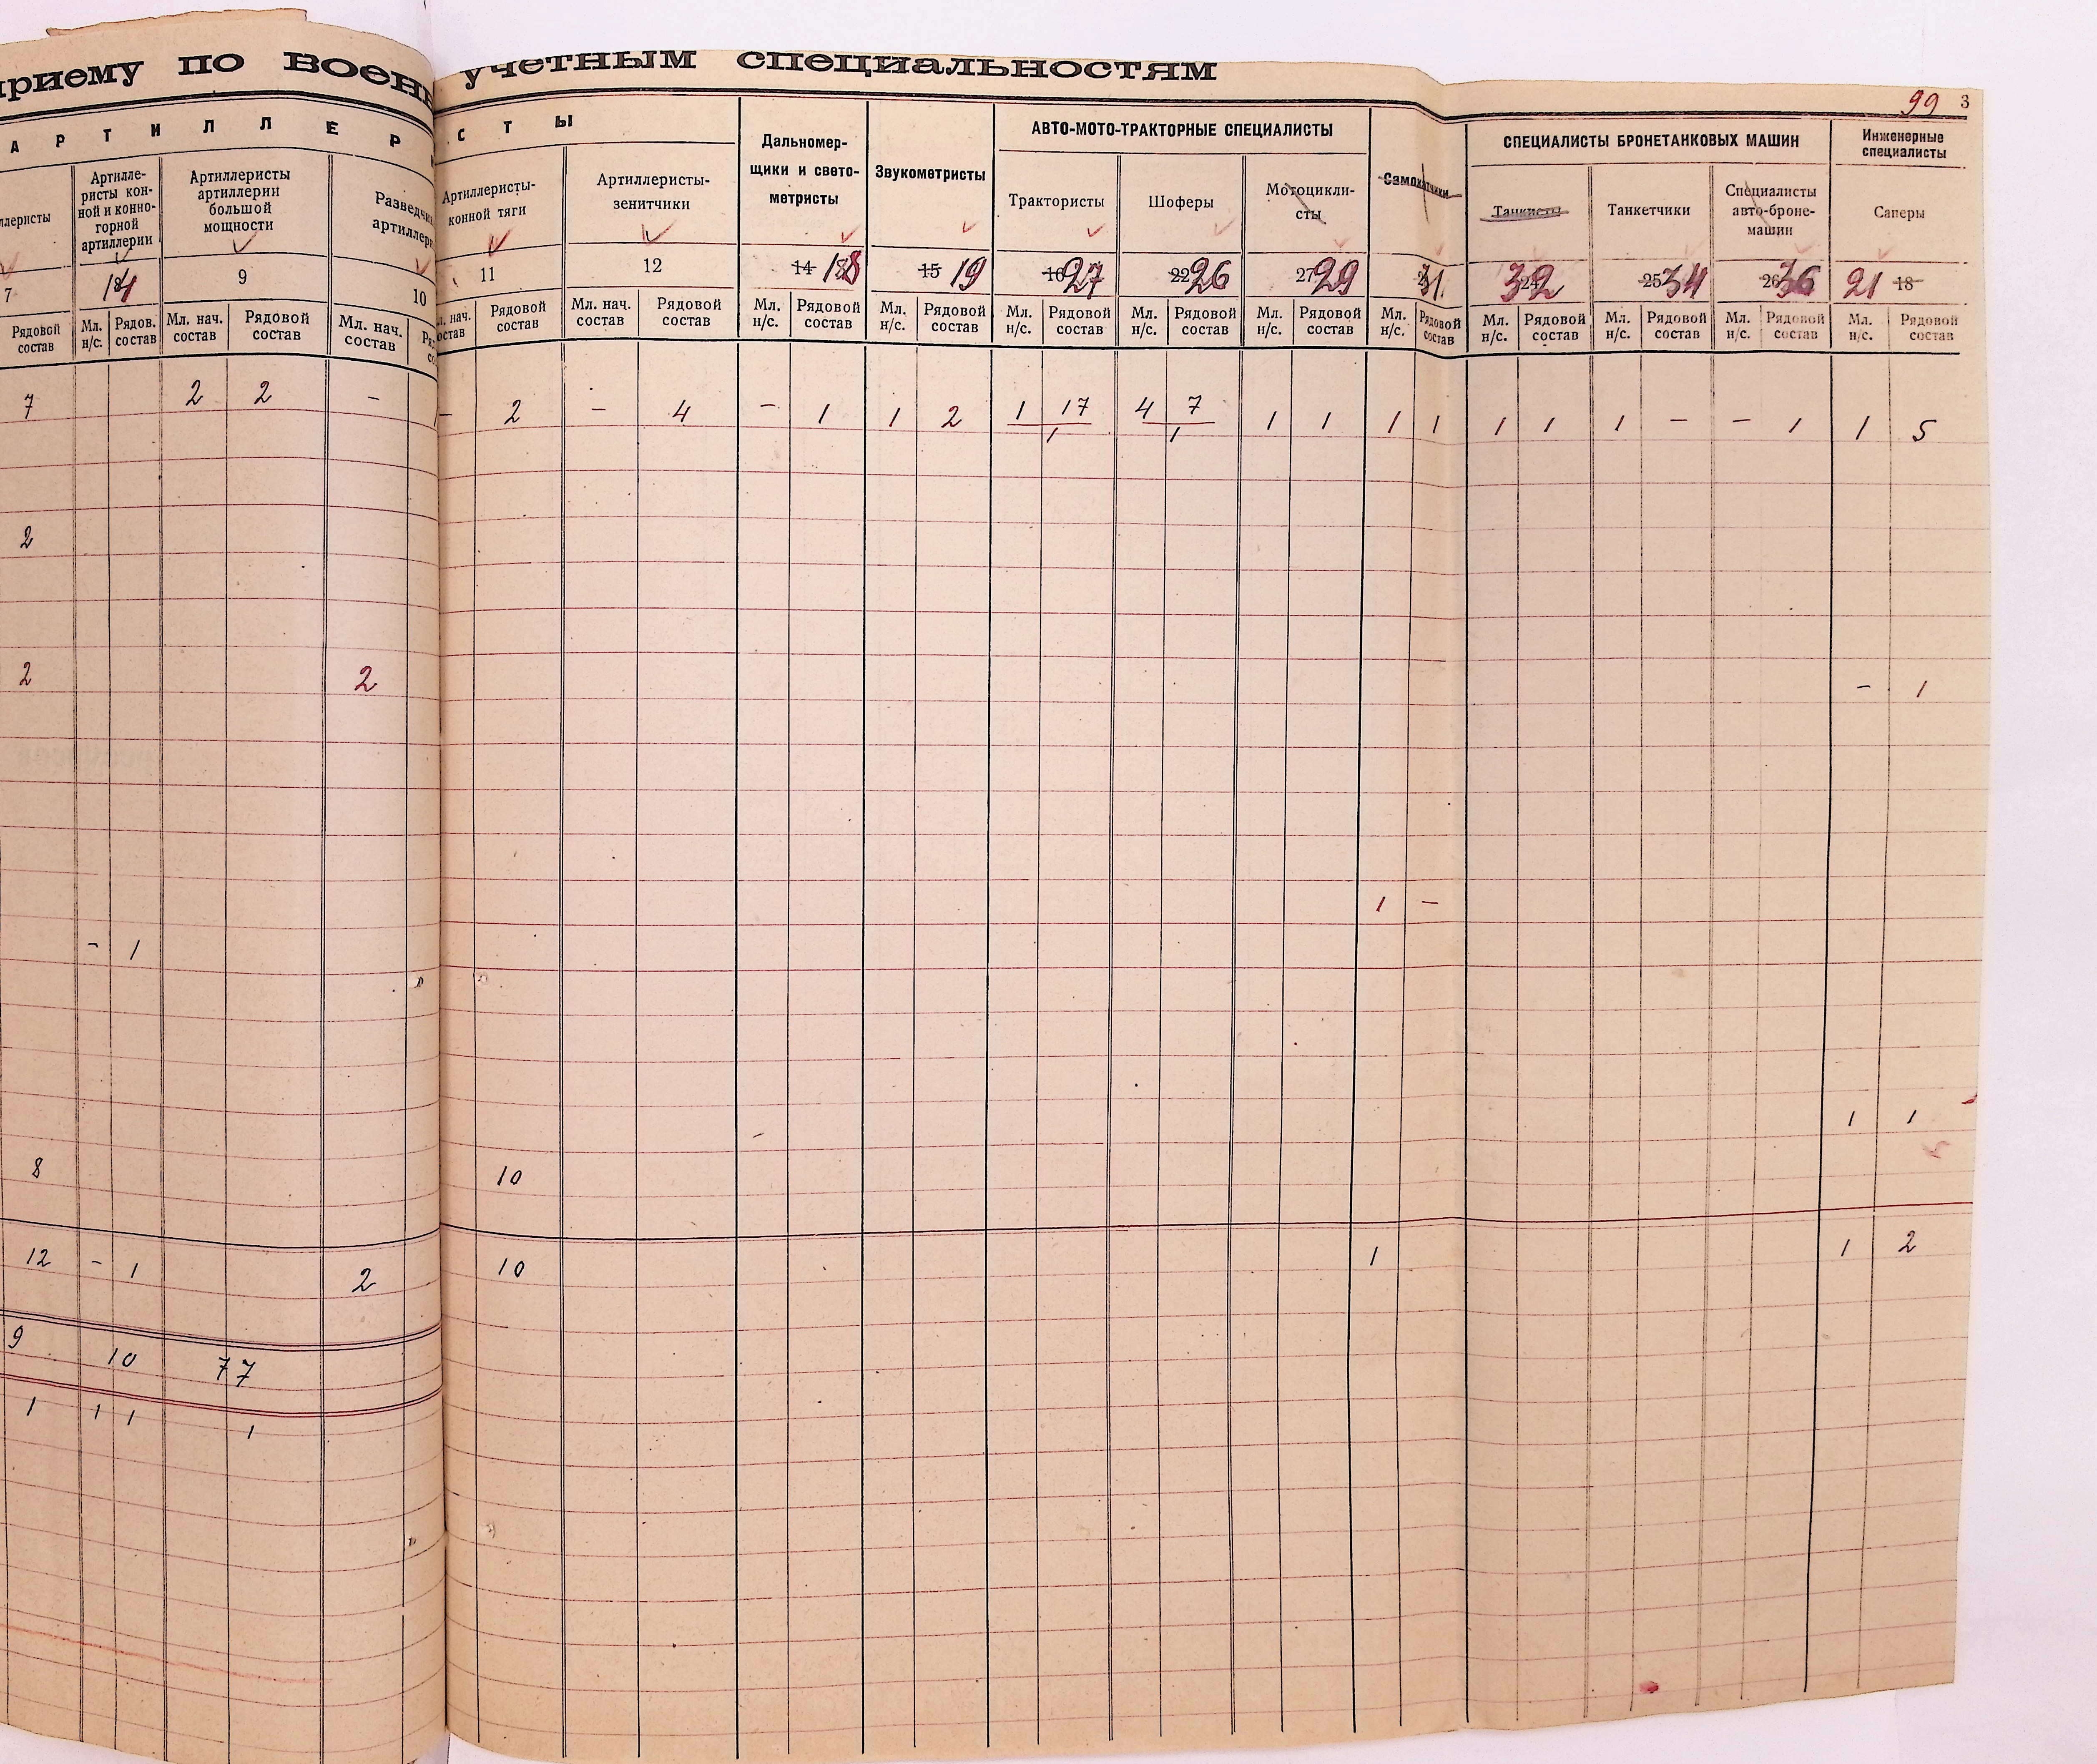 приему по воен учетным специальностям
99 3
А Р Т И Л Л Е Р С Т Ы
Дальномер-
щики и свето-
метристы
Звукометристы
АВТО-МОТО-ТРАКТОРНЫЕ СПЕЦИАЛИСТЫ
Самокатчики
СПЕЦИАЛИСТЫ БРОНЕТАНКОВЫХ МАШИН
Инженерные
специалисты
ллеристы
Артилле-
ристы кон-
ной и конно-
горной
артиллерии
Артиллеристы
артиллерии
большой
мощности
Разведчи
артиллер
Артиллеристы-
конной тяги
Артиллеристы-
зенитчики
Трактористы
Шоферы
Мотоцикли-
сты
Танкисты
Танкетчики
Специалисты
авто-броне-
машин
Саперы
7 14 9 10 11 12 14 18 15 19 16 27 22 26 27 29 31 32 25 34 26 36 21 18
Рядовой состав
Мл. н/с.
Рядов. состав
Мл. нач. состав
Рядовой состав
Мл. нач. состав
нач. остав
Рядовой состав
Мл. нач. состав
Рядовой состав
Мл. н/с.
Рядовой состав
Мл. н/с.
Рядовой состав
Мл. н/с.
Рядовой состав
Мл. н/с.
Рядовой состав
Мл. н/с.
Рядовой состав
Мл. н/с.
Рядовой состав
Мл. н/с.
Рядовой состав
Мл. н/с.
Рядовой состав
Мл. н/с.
Рядовой состав
Мл. н/с.
Рядовой состав
7 2 2 - - 2 - 4 - 1 1 2 1 17 4 7 1 1 1 1 1 1 1 - - 1 1 5
1 1
2
2 2 - 1
1 -
- 1
1 1
8 10
12 - 1 2 10 1 1 2
9 10 77
1 1 1 1